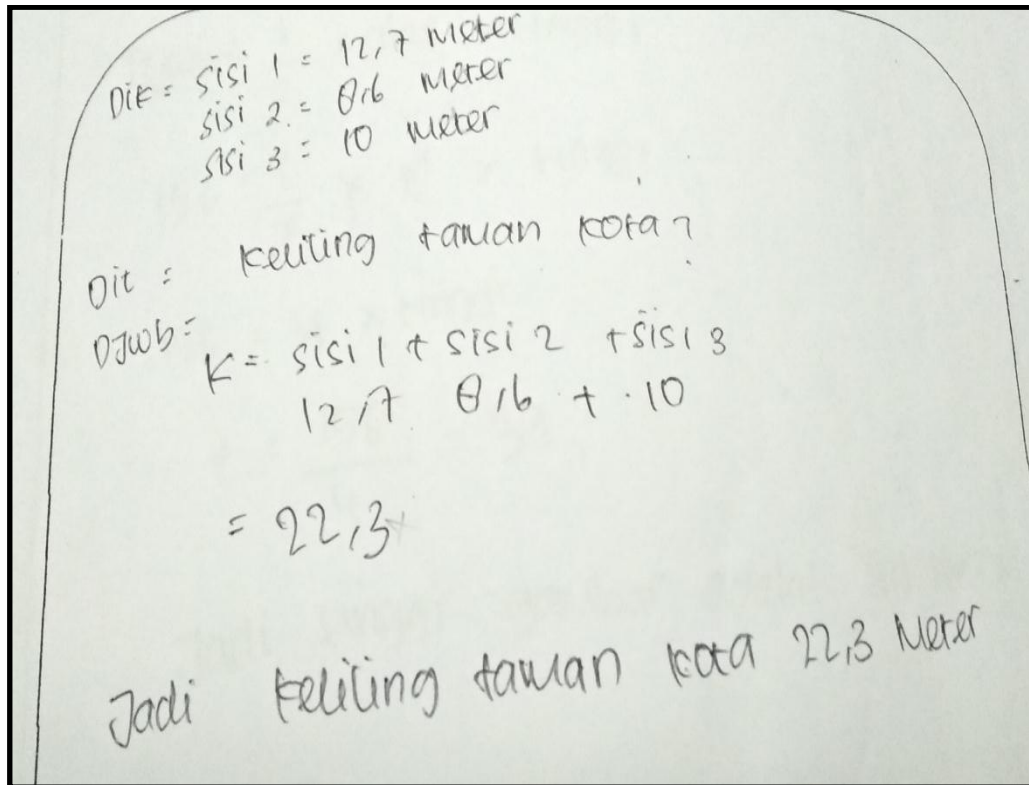 Dik = sisi 1 = 12,7 Meter
sisi 2 = 8,6 Meter
sisi 3 = 10 Meter
Dit = Keliling taman kota?
DJwb =
K = sisi 1 + sisi 2 + sisi 3
12,7 8,6 + 10
= 22,3
Jadi keliling taman kota 22,3 Meter